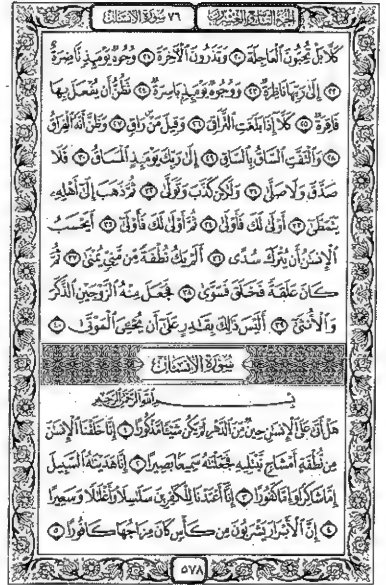 الجزء التاسع والعشرون
٧٦ سورة الإنسان
كَلَّا بَلْ تُحِبُّونَ ٱلْعَاجِلَةَ ٢٠ وَتَذَرُونَ ٱلْآخِرَةَ ٢١ وُجُوهٌ يَوْمَئِذٍ نَّاضِرَةٌ
٢٢ إِلَىٰ رَبِّهَا نَاظِرَةٌ ٢٣ وَوُجُوهٌ يَوْمَئِذٍۭ بَاسِرَةٌ ٢٤ تَظُنُّ أَن يُفْعَلَ بِهَا
فَاقِرَةٌ ٢٥ كَلَّآ إِذَا بَلَغَتِ ٱلتَّرَاقِيَ ٢٦ وَقِيلَ مَنْ رَاقٍ ٢٧ وَظَنَّ أَنَّهُ ٱلْفِرَاقُ
٢٨ وَٱلْتَفَّتِ ٱلسَّاقُ بِٱلسَّاقِ ٢٩ إِلَىٰ رَبِّكَ يَوْمَئِذٍ ٱلْمَسَاقُ ٣٠ فَلَا
صَدَّقَ وَلَا صَلَّىٰ ٣١ وَلَٰكِن كَذَّبَ وَتَوَلَّىٰ ٣٢ ثُمَّ ذَهَبَ إِلَىٰٓ أَهْلِهِۦ
يَتَمَطَّىٰٓ ٣٣ أَوْلَىٰ لَكَ فَأَوْلَىٰ ٣٤ ثُمَّ أَوْلَىٰ لَكَ فَأَوْلَىٰٓ ٣٥ أَيَحْسَبُ
ٱلْإِنسَٰنُ أَن يُتْرَكَ سُدًى ٣٦ أَلَمْ يَكُ نُطْفَةً مِّن مَّنِيٍّ يُمْنَىٰ ٣٧ ثُمَّ
كَانَ عَلَقَةً فَخَلَقَ فَسَوَّىٰ ٣٨ فَجَعَلَ مِنْهُ ٱلزَّوْجَيْنِ ٱلذَّكَرَ
وَٱلْأُنثَىٰٓ ٣٩ أَلَيْسَ ذَٰلِكَ بِقَٰدِرٍ عَلَىٰٓ أَن يُحْـِۧيَ ٱلْمَوْتَىٰ ٤٠
سورة الإنسان
بِسْمِ ٱللَّهِ ٱلرَّحْمَٰنِ ٱلرَّحِيمِ
هَلْ أَتَىٰ عَلَى ٱلْإِنسَٰنِ حِينٌ مِّنَ ٱلدَّهْرِ لَمْ يَكُن شَيْـًٔا مَّذْكُورًا ١ إِنَّا خَلَقْنَا ٱلْإِنسَٰنَ
مِن نُّطْفَةٍ أَمْشَاجٍ نَّبْتَلِيهِ فَجَعَلْنَٰهُ سَمِيعًۢا بَصِيرًا ٢ إِنَّا هَدَيْنَٰهُ ٱلسَّبِيلَ
إِمَّا شَاكِرًا وَإِمَّا كَفُورًا ٣ إِنَّآ أَعْتَدْنَا لِلْكَٰفِرِينَ سَلَٰسِلَا۟ وَأَغْلَٰلًا وَسَعِيرًا
٤ إِنَّ ٱلْأَبْرَارَ يَشْرَبُونَ مِن كَأْسٍ كَانَ مِزَاجُهَا كَافُورًا ٥
٥٧٨